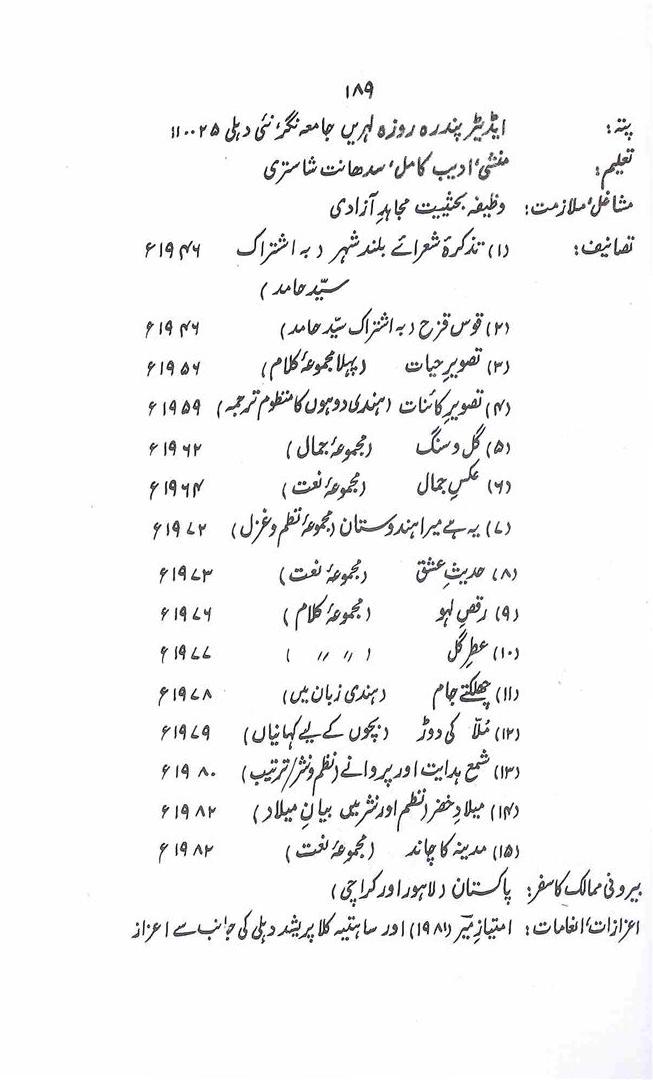 ۱۸۹
پتہ: ایڈیٹر پندرہ روزہ لہریں جامعہ نگر، نئی دہلی ۱۱۰۰۲۵
تعلیم: منشی، ادیب کامل، سدھانت شاستری
مشاغل، ملازمت: وظیفہ بحیثیت مجاہدِ آزادی
تصانیف: (۱) تذکرۂ شعرائے بلند شہر (بہ اشتراک ۱۹۴۶ء
سیّد حامد)
(۲) قوس قزح (بہ اشتراک سیّد حامد) ۱۹۴۶ء
(۳) تصویرِ حیات (پہلا مجموعۂ کلام) ۱۹۵۶ء
(۴) تصویرِ کائنات (ہندی دوہوں کا منظوم ترجمہ) ۱۹۵۹ء
(۵) گل و سنگ (مجموعۂ جمال) ۱۹۶۲ء
(۶) عکسِ جمال (مجموعۂ نعت) ۱۹۶۴ء
(۷) یہ ہے میرا ہندوستان (مجموعۂ نظم و غزل) ۱۹۷۲ء
(۸) حدیثِ عشق (مجموعۂ نعت) ۱۹۷۳ء
(۹) رقصِ لہو (مجموعۂ کلام) ۱۹۷۶ء
(۱۰) عطرِ گل ( 〃 〃 ) ۱۹۷۷ء
(۱۱) چھلکتے جام (ہندی زبان میں) ۱۹۷۸ء
(۱۲) مُلّا کی دوڑ (بچوں کے لیے کہانیاں) ۱۹۷۹ء
(۱۳) شمع ہدایت اور پروانے (نظم و نثر/ترتیب) ۱۹۸۰ء
(۱۴) میلادِ خضر (نظم اور نثر میں بیانِ میلاد) ۱۹۸۲ء
(۱۵) مدینہ کا چاند (مجموعۂ نعت) ۱۹۸۲ء
بیرونی ممالک کا سفر: پاکستان (لاہور اور کراچی)
اعزازات، انعامات: امتیازِ میرؔ (۱۹۸۱) اور ساہتیہ کلا پریشد دہلی کی جانب سے اعزاز